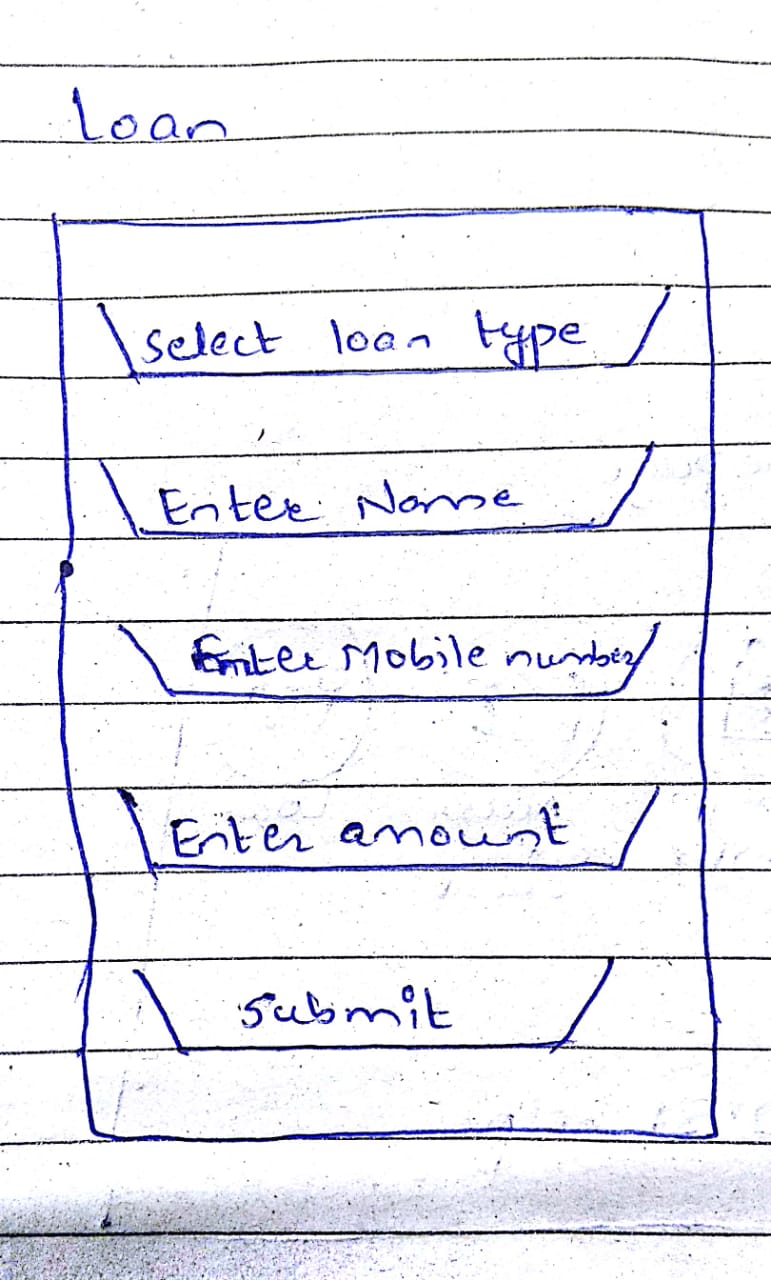 Loan
Select loan type
Enter Name
Enter Mobile number
Enter amount
Submit